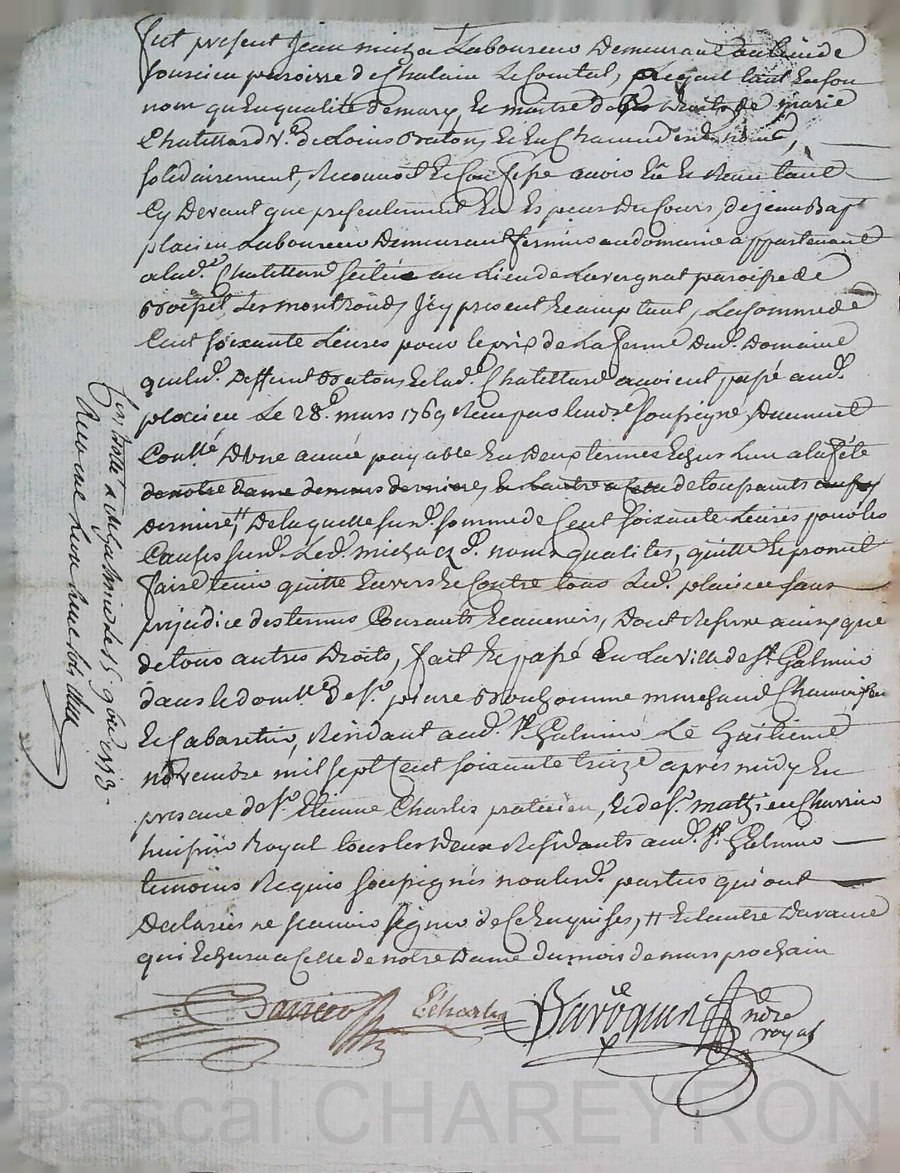 fut present Jean micha Laboureur Demeurant au lieu de
souscieu paroisse de Chalain Le Comtal, lequel tant En son
nom qu'En qualité de mary Et maitre des Droits de marie
Chatillard Vᵉ. de Louis Bratons Et En Chacun desd. noms,
solidairement, Reconnoit Et Confesse avoir Eu Et Receu tant
Cy Devant que presentement En Espèces Du Cours, de jean Bapt
placieu Laboureur Demeurant fermier au domaine appartenant
a lad. Chatillard scitué au Lieu de Lavergnat paroisse de
Les montronds, Icy present Et acceptant, La somme de
Cent soixante Livres pour le prix de La ferme Dud. Domaine
que led. Deffunt Bratons Et lad. Chatillard avoient passé aud.
placieu Le 28ᵉ. mars 1769 Receu par le nore. soussigné, Duement
Conllé. D'une année payable En Deux termes Echus L'un a la fête
de notre Dame de mars derniere, Et L'autre a Celle de toussaints
derniere,// De laquelle susd. somme de Cent soixante Livres pour les
Causes susd. Led. micha Esd. noms qualités, quitte Et promet
faire tenir quitte Envers Et Contre tous Led. placieu sans
prejudice des termes Courants Et avenirs, Dont Reserve ainsy que
de tous autres Droits, fait Et passé En La Ville de St. Galmier
dans le domlle. de sr. pierre Brouhomme marchand
Et Cabaretier, Residant aud. St. Galmier Le huitieme
novembre mil sept Cent soixante treize apres midy En
presence de sr. Etienne Charles praticien, Et de sr. mathieu Charrier
huissier Royal tous les Deux Residants aud. St. Galmier
temoins Requis soussignés non lesd. parties qui ont
Declarés ne scavoir signer de Ce Enquises, // Et L'autre D'avance
qui Echera a Celle de notre Dame du mois de mars prochain
Echarles Baroquin nore
royal
Conllé a St Galmier Le 15. 9bre 1773.
Receu
Pascal CHAREYRON